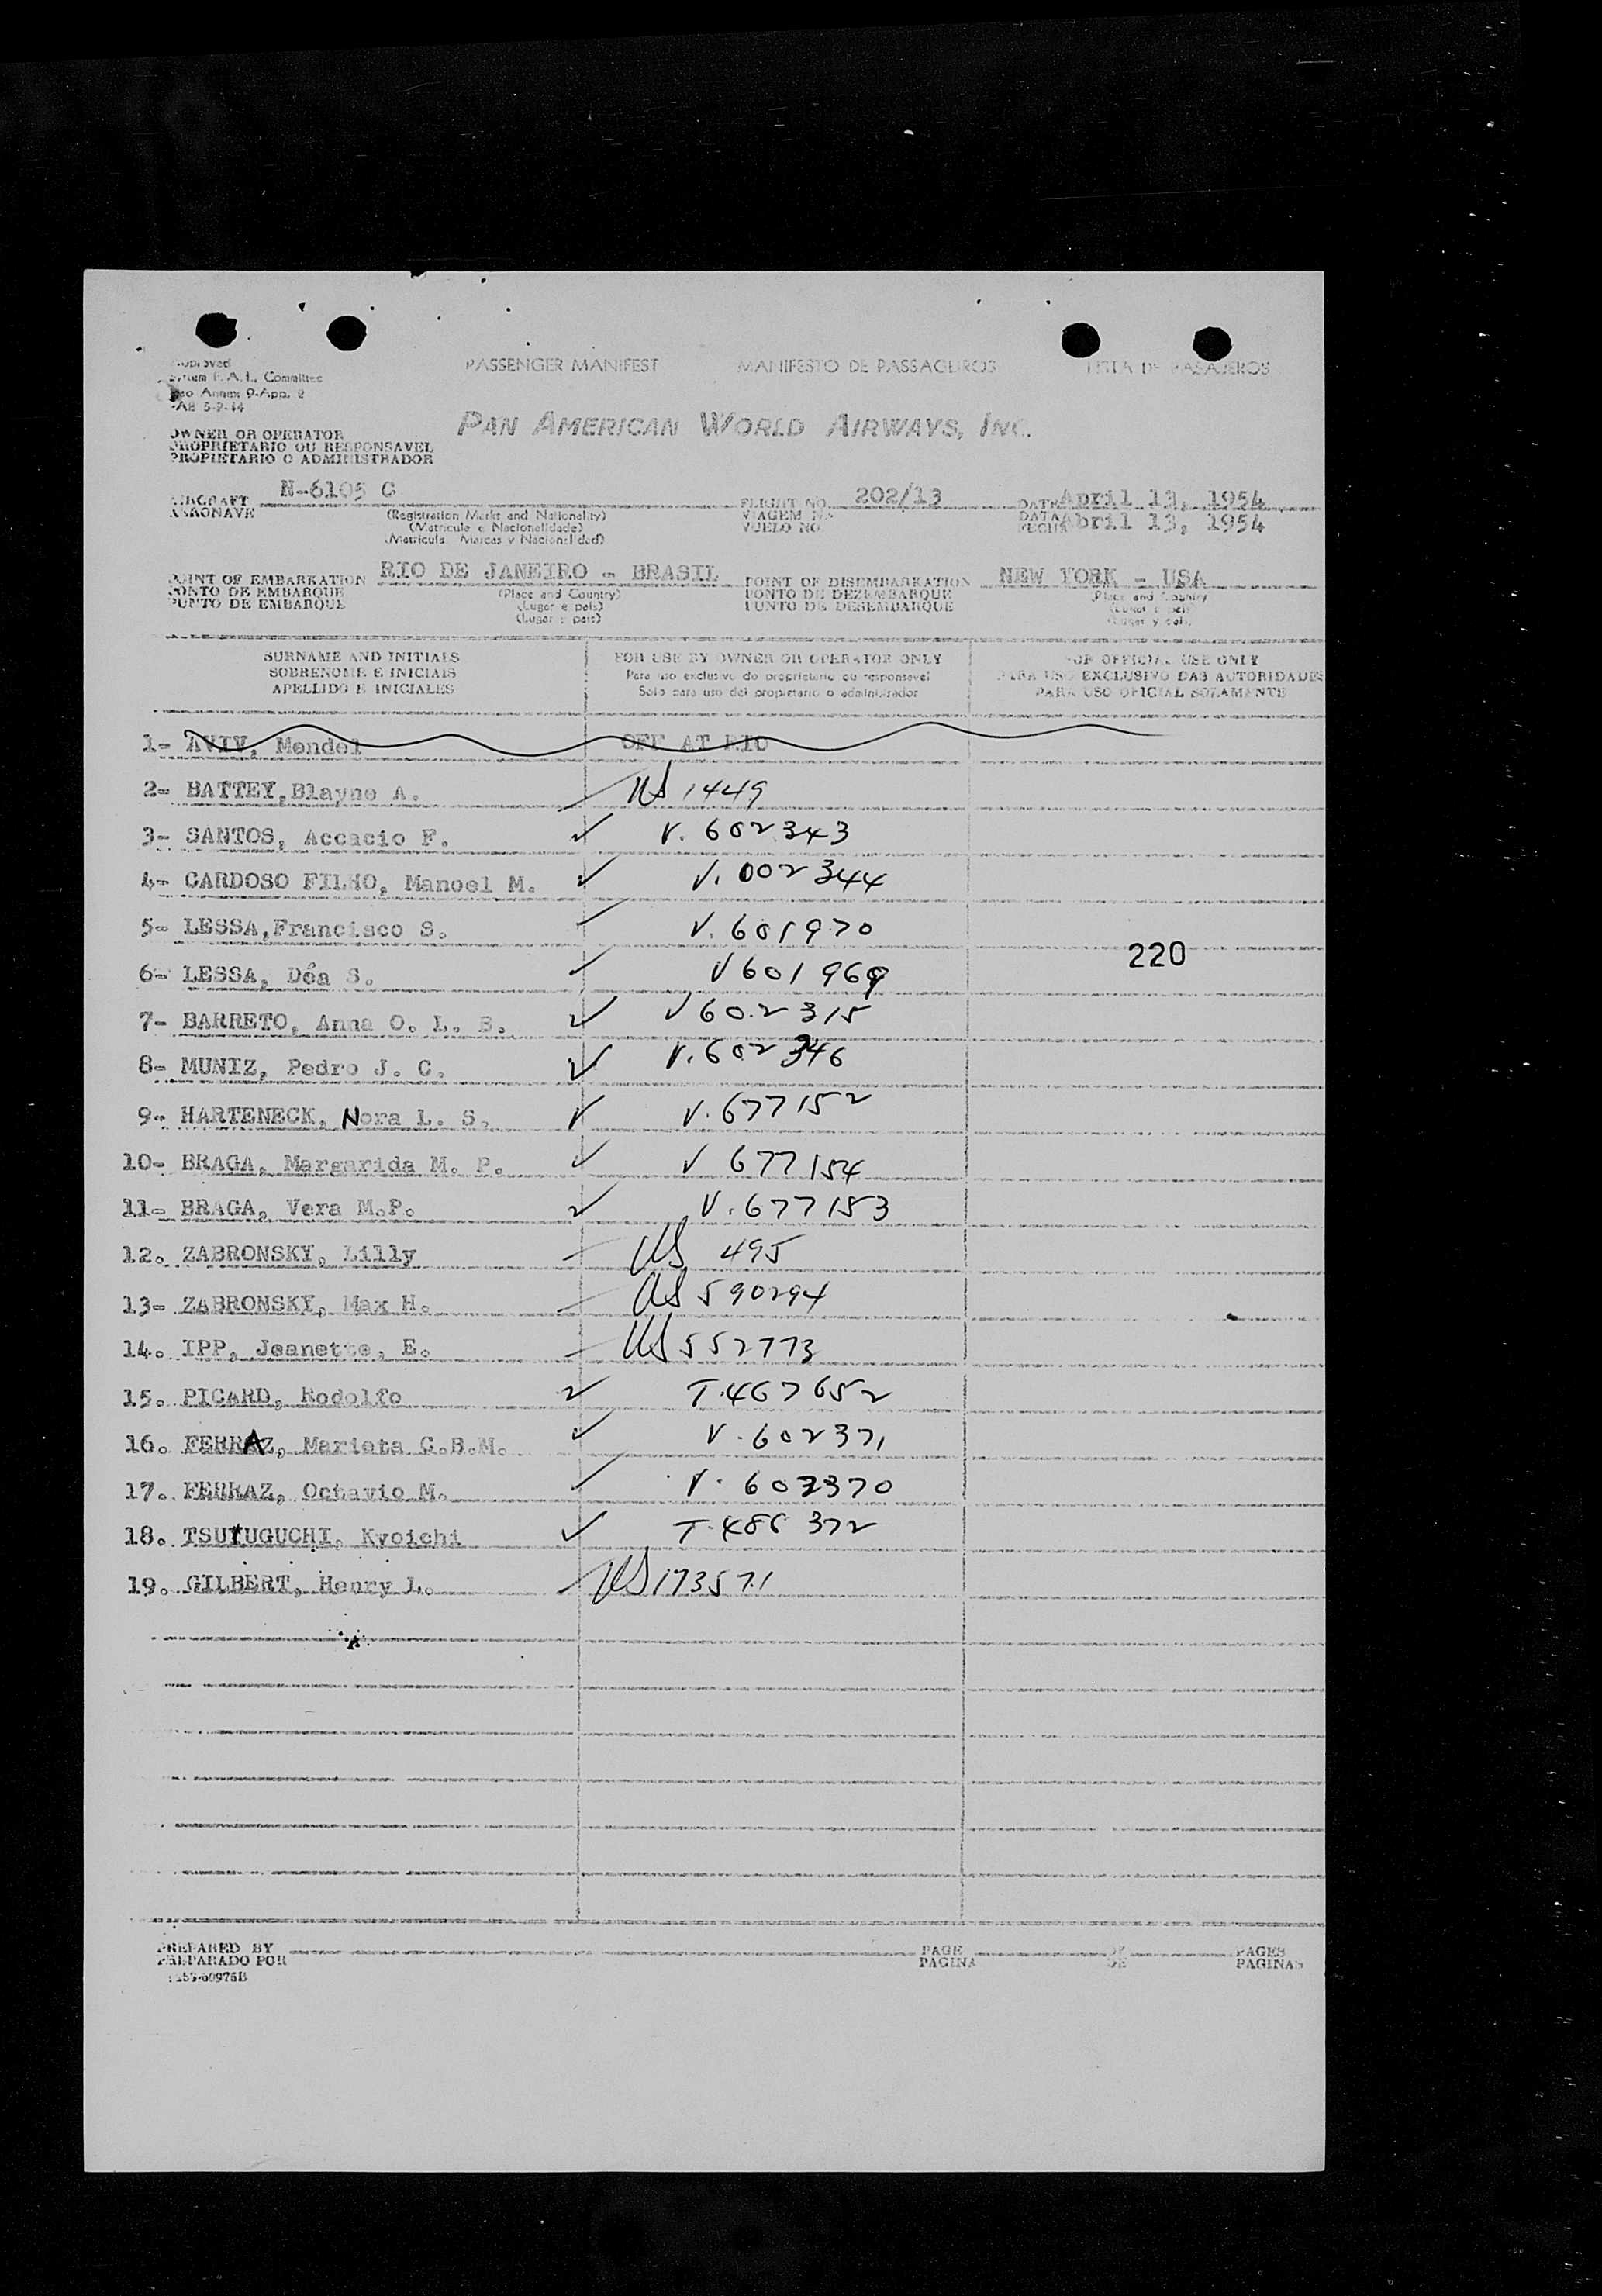 Approved
PASSENGER MANIFEST MANIFESTO DE PASSAGEIROS LISTA DE PASAJEROS
F.A.L. Committee
Annex 9-App. 2
5-2-44
PAN AMERICAN WORLD AIRWAYS, INC.
OWNER OR OPERATOR
PROPRIETARIO OU RESPONSAVEL
PROPIETARIO O ADMINISTRADOR
AIRCRAFT N-6105 C FLIGHT NO. 202/13 DATE April 13, 1954
AERONAVE (Registration Marks and Nationality) VIAGEM No. DATA Abril 13, 1954
(Matricula e Nacionalidade) VUELO NO. FECHA
(Matricula Marcas y Nacionalidad)
POINT OF EMBARKATION RIO DE JANEIRO - BRASIL POINT OF DISEMBARKATION NEW YORK - USA
PONTO DE EMBARQUE (Place and Country) PONTO DE DEZEMBARQUE (Place and Country
PUNTO DE EMBARQUE (Lugar e pais) PUNTO DE DESEMBARQUE (Lugar e pais)
(Lugar y pais) (Lugar y pais)
SURNAME AND INITIALS FOR USE BY OWNER OR OPERATOR ONLY FOR OFFICIAL USE ONLY
SOBRENOME E INICIAIS Para uso exclusivo do proprietario ou responsavel PARA USO EXCLUSIVO DAS AUTORIDADES
APELLIDO E INICIALES Solo para uso del propietario o administrador PARA USO OFICIAL SOLAMENTE
1- AVIV, Mendel OFF AT RIO
2- BATTEY,Blayne A. US 1449
3- SANTOS, Accacio F. V. 602343
4- CARDOSO FILHO, Manoel M. V. 002344
5- LESSA,Francisco S. V. 601970
220
6- LESSA, Déa S. V 601969
7- BARRETO, Anna O. L. B. V 602315
8- MUNIZ, Pedro J. C. V. 602346
9- HARTENECK, Nora L. S. V. 677152
10- BRAGA, Margarida M. P. V 677154
11- BRAGA, Vera M.P. V. 677153
12. ZABRONSKY, Lilly US 495
13- ZABRONSKY, Max H. US 590294
14. IPP, Jeanette, E. US 552773
15. PICARD, Rodolfo T. 467652
16. FERRAZ, Marieta C.B.M. V. 602371
17. FERRAZ, Octavio M. V. 602370
18. TSUTUGUCHI, Kyoichi T. 486372
19. GILBERT, Henry L. US 173571
PREPARED BY PAGE OF PAGES
PREPARADO POR PAGINA DE PAGINAS